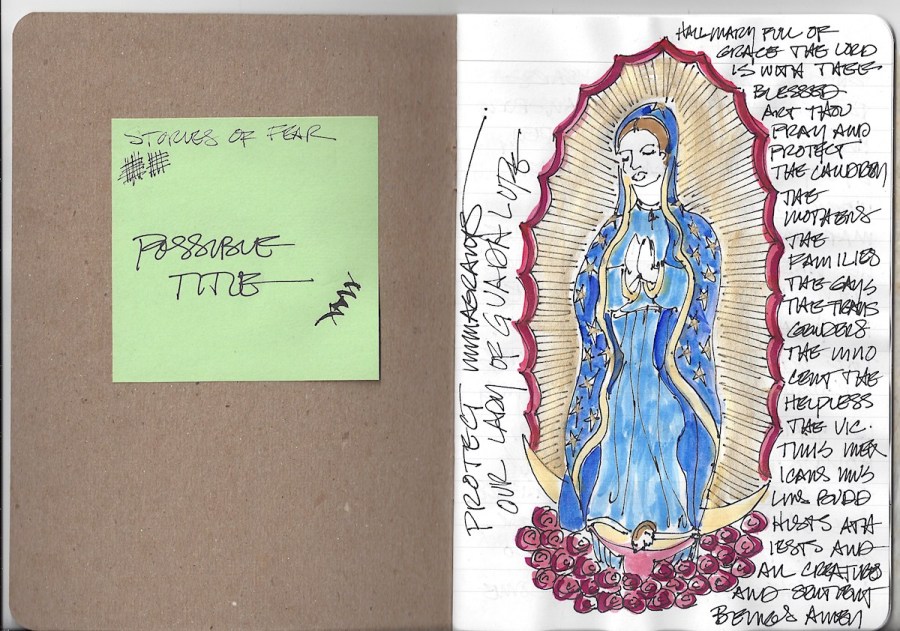 STORIES OF FEAR
POSSIBLE
TITLE
PROTECT IMMIGRANTS
OUR LADY OF GUADALUPE
HAIL MARY FULL OF
GRACE THE LORD
IS WITH THEE
BLESSED
ART THOU
PRAY AND
PROTECT
THE CHILDREN
THE
MOTHERS
THE
FAMILIES
THE GAYS
THE TRANS
GENDERS
THE INNO
CENT THE
HELPLESS
THE VIC-
TIMS MEX
ICANS MUS
LIMS BUDD
HISTS ATH
IESTS AND
ALL CREATURES
AND SENTIENT
BEINGS AMEN